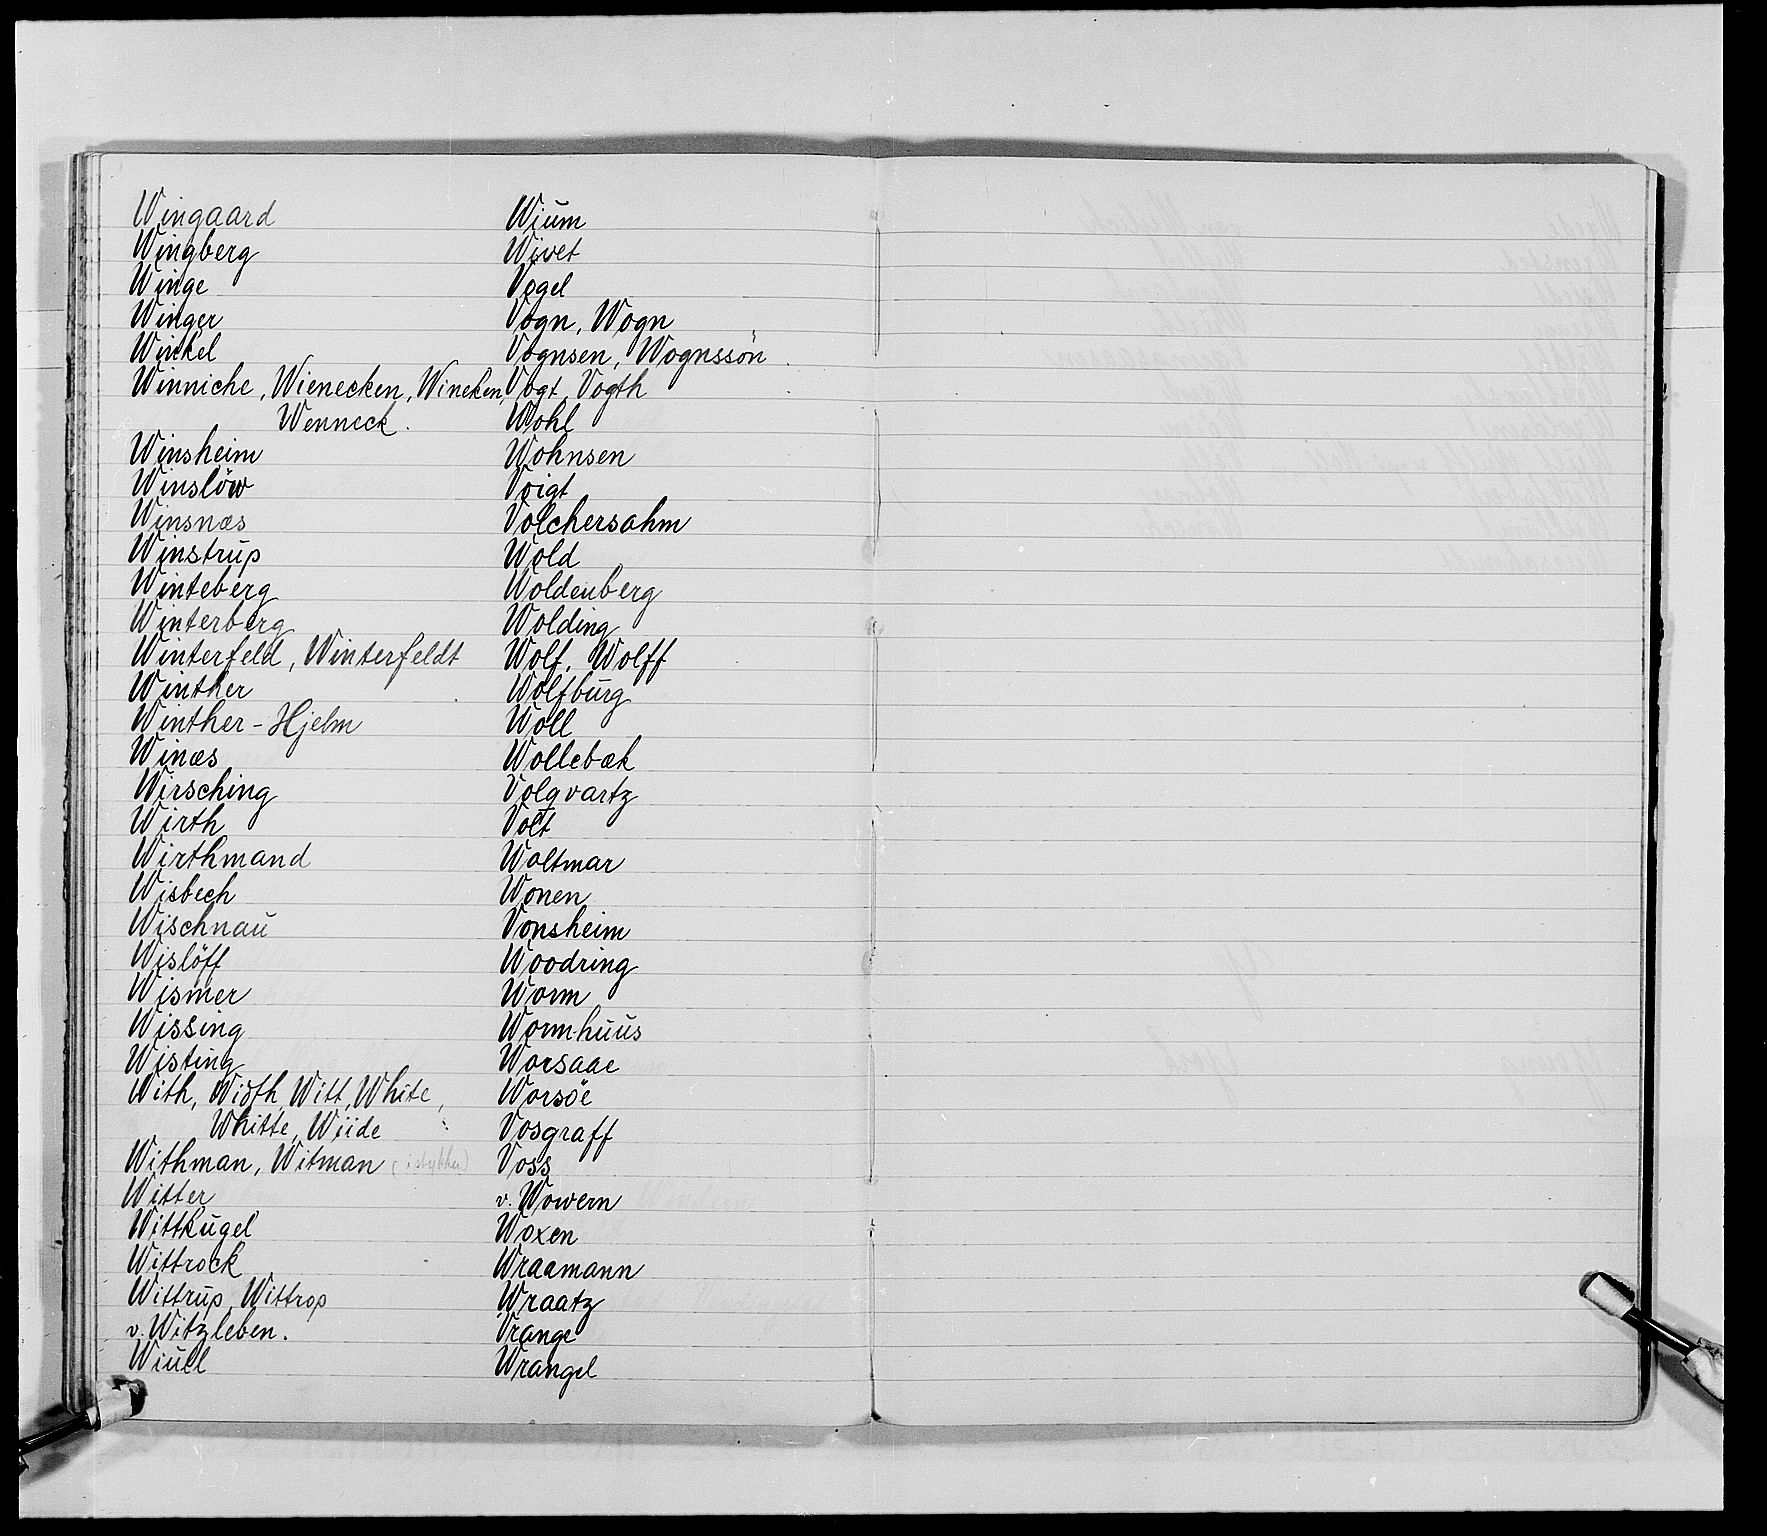 Wingaard
Wingberg
Winge
Winger
Winkel
Winniche, Wienecken, Wineken,
Wenneck.
Winsheim
Winslöw
Winsnæs
Winstrup
Winteberg
Winterberg
Winterfeld, Winterfeldt
Winther
Winther-Hjelm
Winæs
Wirsching
Wirth
Wirthmand
Wisbech
Wischnau
Wislöff
Wismer
Wissing
Wisting
With, Width, Witt, White,
Whitte, Wiide
Withman, Witman (i stykker)
Witter
Wittkugel
Wittrock
Wittrup, Wittrop
v. Witzleben.
Wiuel
Wium
Wivet
Vogel
Vogn, Wogn
Vognsen, Wognssön
Vogt, Vogth
Wohl
Wohnsen
Voigt
Volchersahm
Wold
Woldenberg
Wolding
Wolf, Wolff
Wolfburg
Woll
Wollebæk
Volqvartz
Volt
Woltmar
Wonen
Vonsheim
Woodring
Worm
Wormhuus
Worsaae
Worsöe
Vosgraff
Voss
v. Wowern
Woxen
Wraamann
Wraatz
Vrange
Wrangel